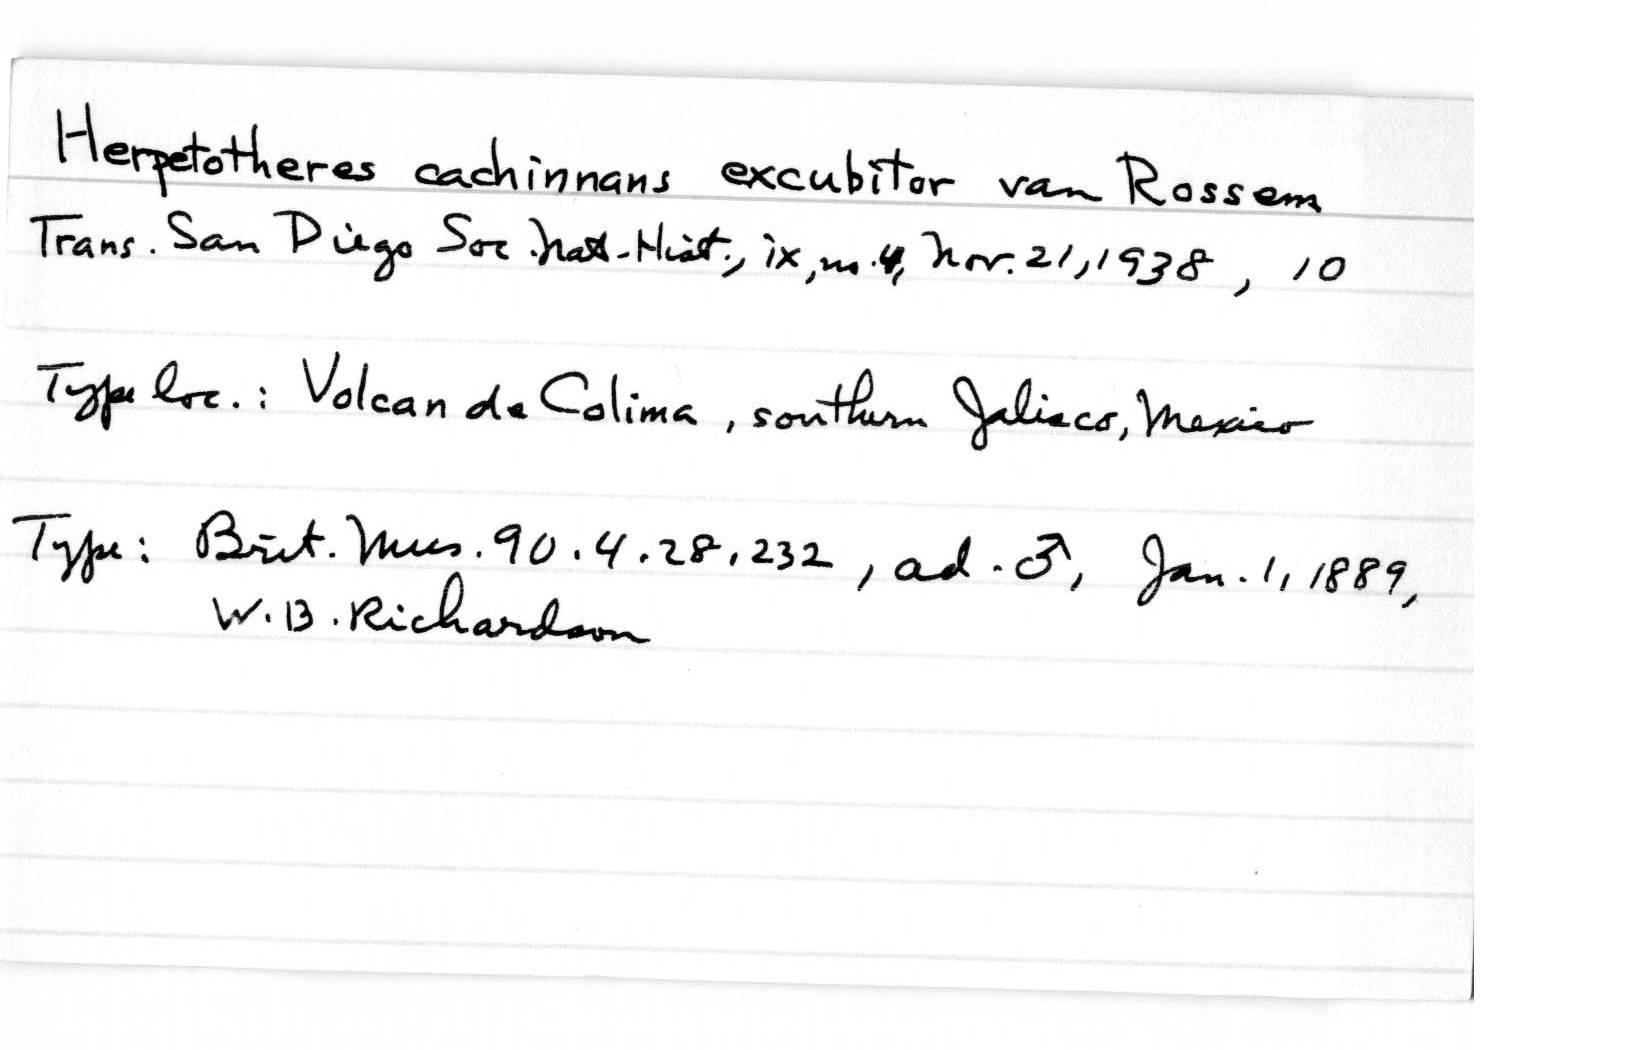 Herpetotheres cachinnans excubitor van Rossem
Trans. San Diego Soc. Nat. Hist., ix, no. 4, Nov. 21, 1938, 10
Type loc.: Volcan de Colima, southern Jalisco, Mexico
Type: Brit. Mus. 90.4.28.232, ad. ♂, Jan. 1, 1889,
W. B. Richardson